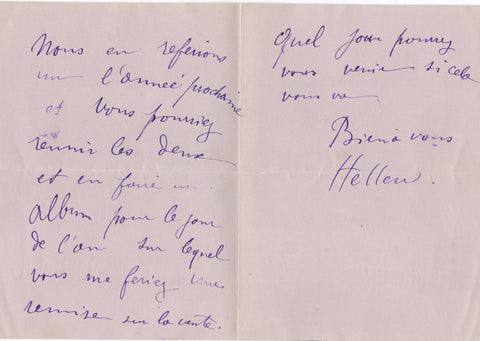 Nous en referions
un l'année prochaine
et vous pourriez
reunir les deux
et en faire un
album pour le jour
de l'an sur lequel
vous me feriez une
remise sur la vente.
Quel jour pourrez
vous venir si cela
vous va
Bien à vous
Helleu.